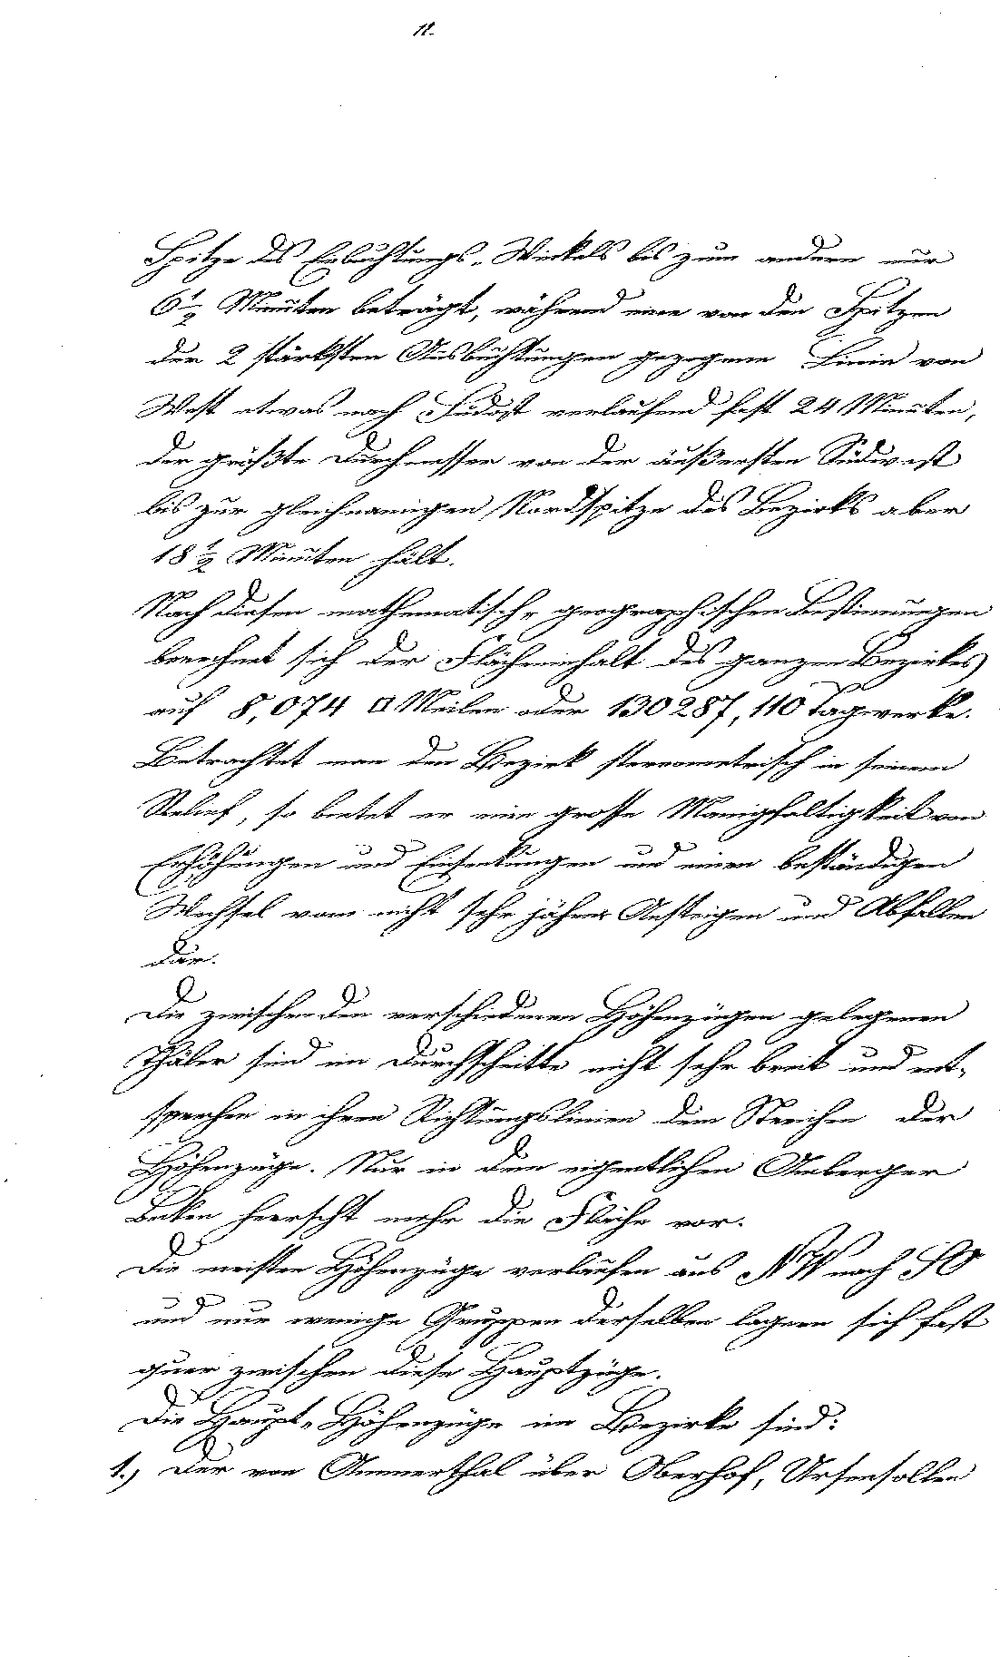 12.
Spitze des Einbuchtungs-Winkels bis zum andern nur
6 1/2 Minuten beträgt, während eine von den Spitzen
der 2 stärksten Ausbuchtungen gezogene Linie von
West etwas nach Südost verlaufend fast 24 Minuten,
der größte Durchmesser von der äußersten Südwest
bis zur gleichnamigen Nordspitze des Bezirks aber
18 1/2 Minuten hält.
Nach diesen mathematisch-geographischen Bestimungen
berechnet sich der Flächeninhalt des ganzen Bezirkes
auf 8,074 □ Meilen oder 130287,110 Tagwerke.
Betrachtet man den Bezirk stereometrisch in seinem
Relief, so bietet er eine grosse Manigfaltigkeit von
Erhöhungen und Einsenkungen und einen beständigen
Wechsel vom nicht sehr jähen Ansteigen und Abfallen
dar.
Die zwischen den verschiedenen Höhenzügen gelegenen
Thäler sind im Durchschnitte nicht sehr breit und ent-
sprechen in ihren Richtungslinien dem Streichen der
Höhenzüge. Nur in dem eigentlichen Amberger
Becken herrscht mehr die Fläche vor.
Die meisten Höhenzüge verlaufen aus NW nach SO
und nur wenige Gruppen derselben lagern sich fast
quer zwischen diese Hauptzüge.
Die Haupt-Höhenzüge im Bezirke sind:
1.) Der von Ammerthal über Oberhof, Ursensollen